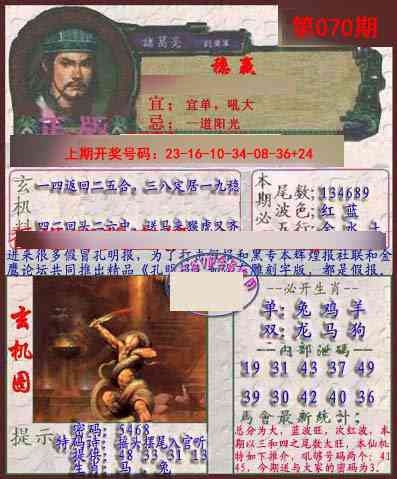 第070期
諸葛亮
稳赢
宜：宜单，吼大
忌：一道阳光
上期开奖号码：23-16-10-34-08-36+24
玄机
一四返回二五合，三八定居一九稳
本期必
尾数:134689
波色:红 蓝
进来很多假冒孔明报，为了打
黑专本辉煌报社联和金
鹰论坛共同推出精品《孔明
雕刻字版，都是假报，
玄机图
必开生肖
单:兔 鸡 羊
双:龙 马 狗
内部泄码
19 31 43 37 49
39 30 42 40 36
馬會最新統计:
总分为大，蓝波旺，次红波，本
期以三和四之尾数大旺，本仙机
特如下推介，吼够号码两个: 41
45，今期送与大家的密码为3.
提示
密码: 5468
特码诗: 摇头摆尾入官听
提供: 48 33 31 13
生肖: 马 兔